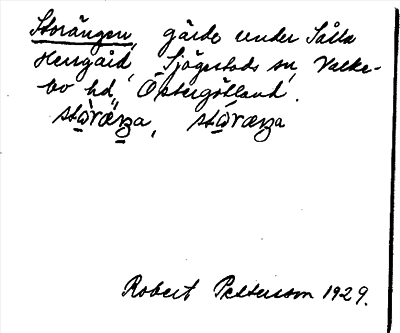 Storängen, gärde under Sälla
Herrgård, Sjögestads sn, Valke-
bo hd, Östergötland.
Robert Pettersson 1929.